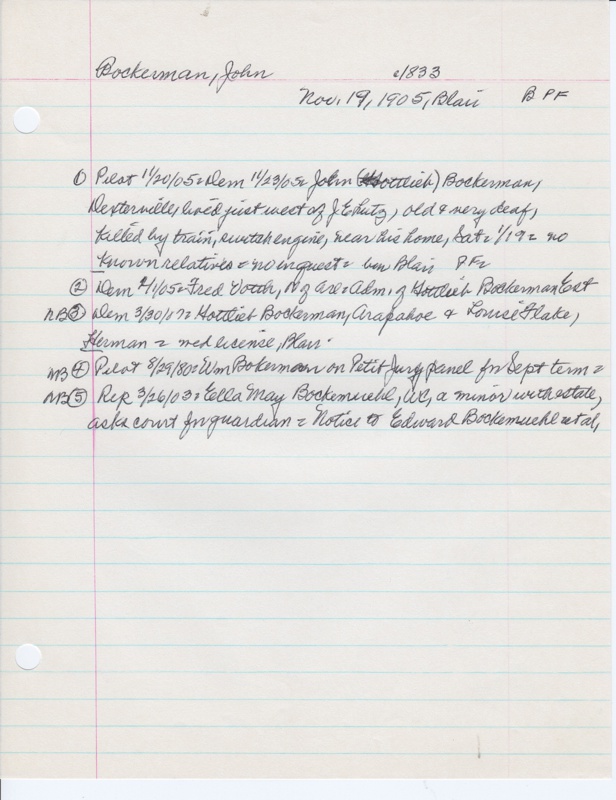 Bockerman, John c/1833
Nov. 19, 1905, Blair B PF
① Pilot 11/20/05 = Dem 11/23/05 = John (Gottlieb) Bockerman,
Dexterville, lived just west of J E Lutz, old & very deaf,
killed by train, switch engine, near his home, Sat = 1/19 = no
known relatives = no inquest = bur Blair PF=
② Dem 4/1/05 = Fred Voth, N of are = Adm. of Gottlieb Bockerman Est
NB③ Dem 3/30/17 = Gottlieb Bockerman, Arapahoe & Louise Flake,
Herman = wed license, Blair.
NB④ Pilot 8/29/80 = Wm Bokerman on Petit Jury panel for Sept term =
NB⑤ Rep 3/26/03 = Ella May Bockemuehl, WC, a minor with estate,
asks court for guardian = Notice to Edward Bockemuehl et al,